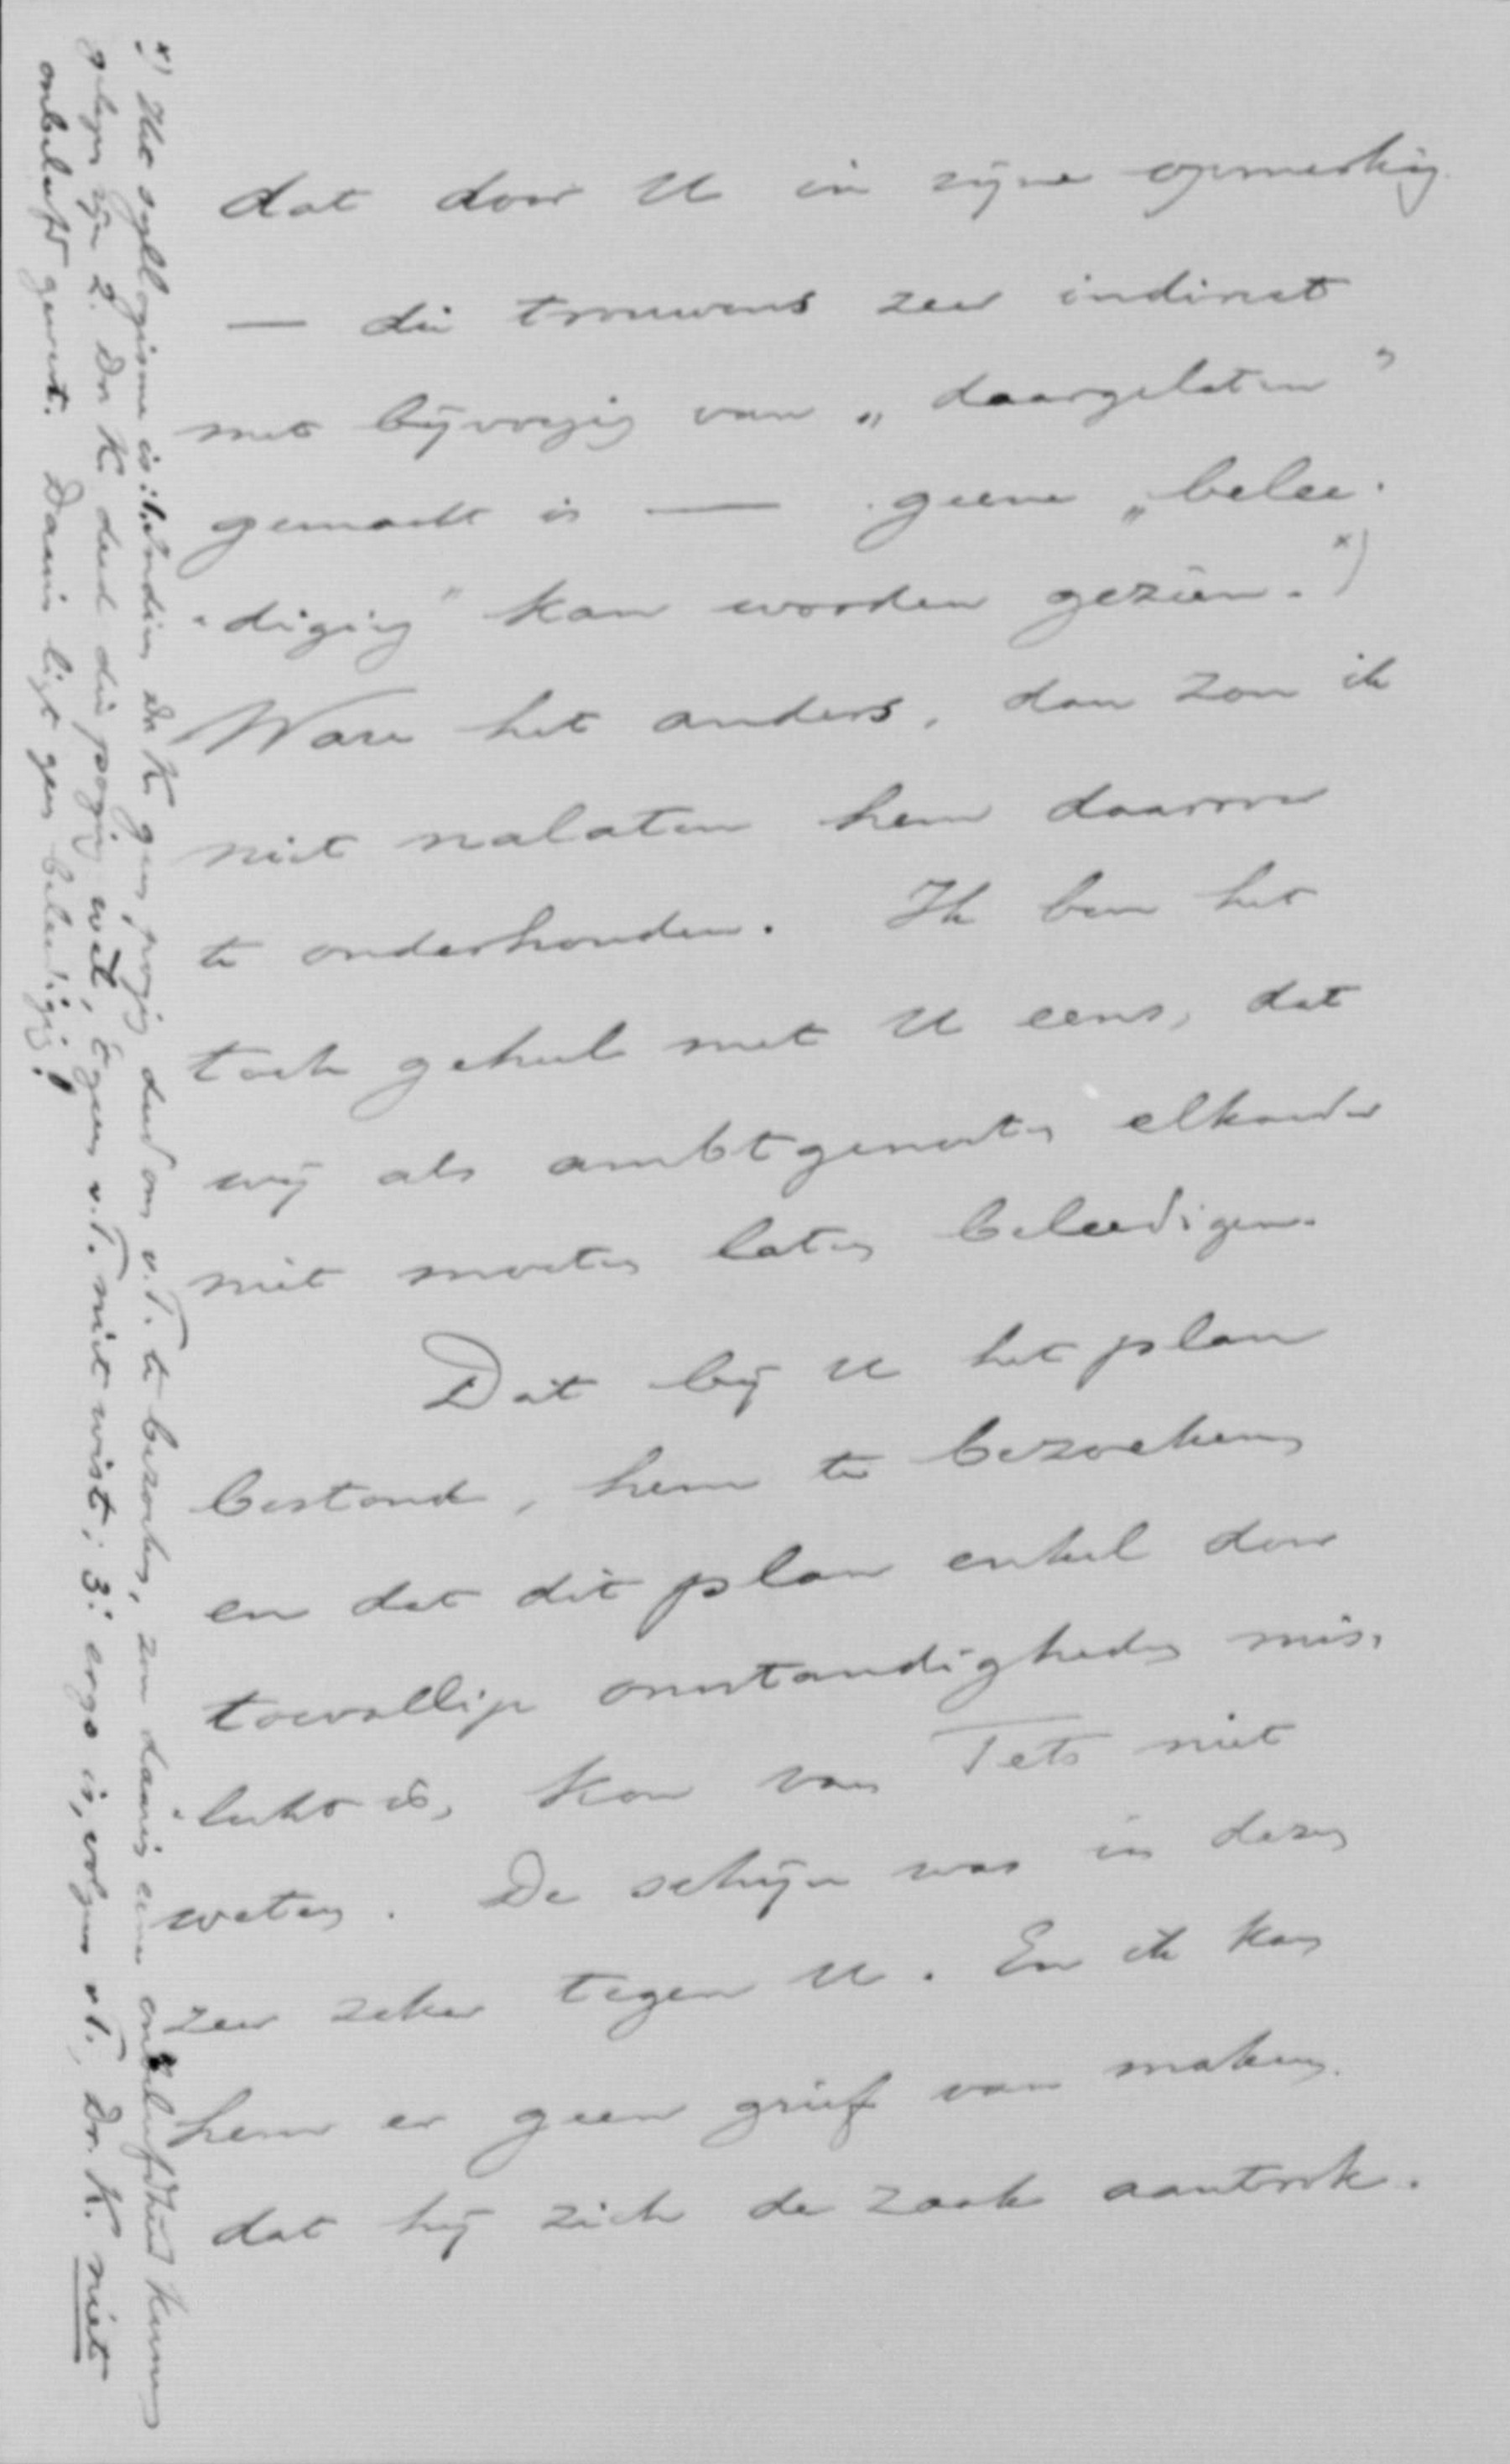 dat door U in zijne opmerking
— die trouwens zeer indirect
met bijvoeging van „daargelaten”
gemaakt is — geene „belee-
diging” kan worden gezien. x)
Ware het anders, dan zou ik
niet nalaten hem daarover
te onderhouden. Ik ben het
toch geheel met U eens, dat
wij als ambtgenooten elkander
niet moeten laten beleedigen.
Dat bij U het plan
bestond, hem te bezoeken
en dat dit plan enkel door
toevallige omstandigheden mis-
lukt is, kon van Tets niet
weten. De schijn was in dezen
zeer zeker tegen U. En ik kan
hem er geen grief van maken
dat hij zich de zaak aantrok.
x) Het syllogisme is: 1. Indien Dr K. geen poging deed om v.T. te bezoeken, zou daarin eene onbeleefdheid kunnen
gelegen zijn 2. Dr K. deed die poging wel, 'tgeen v.T. niet wist; 3: ergo is, volgens v.T., Dr. K. niet
onbeleefd geweest. Daarin ligt geen beleediging!